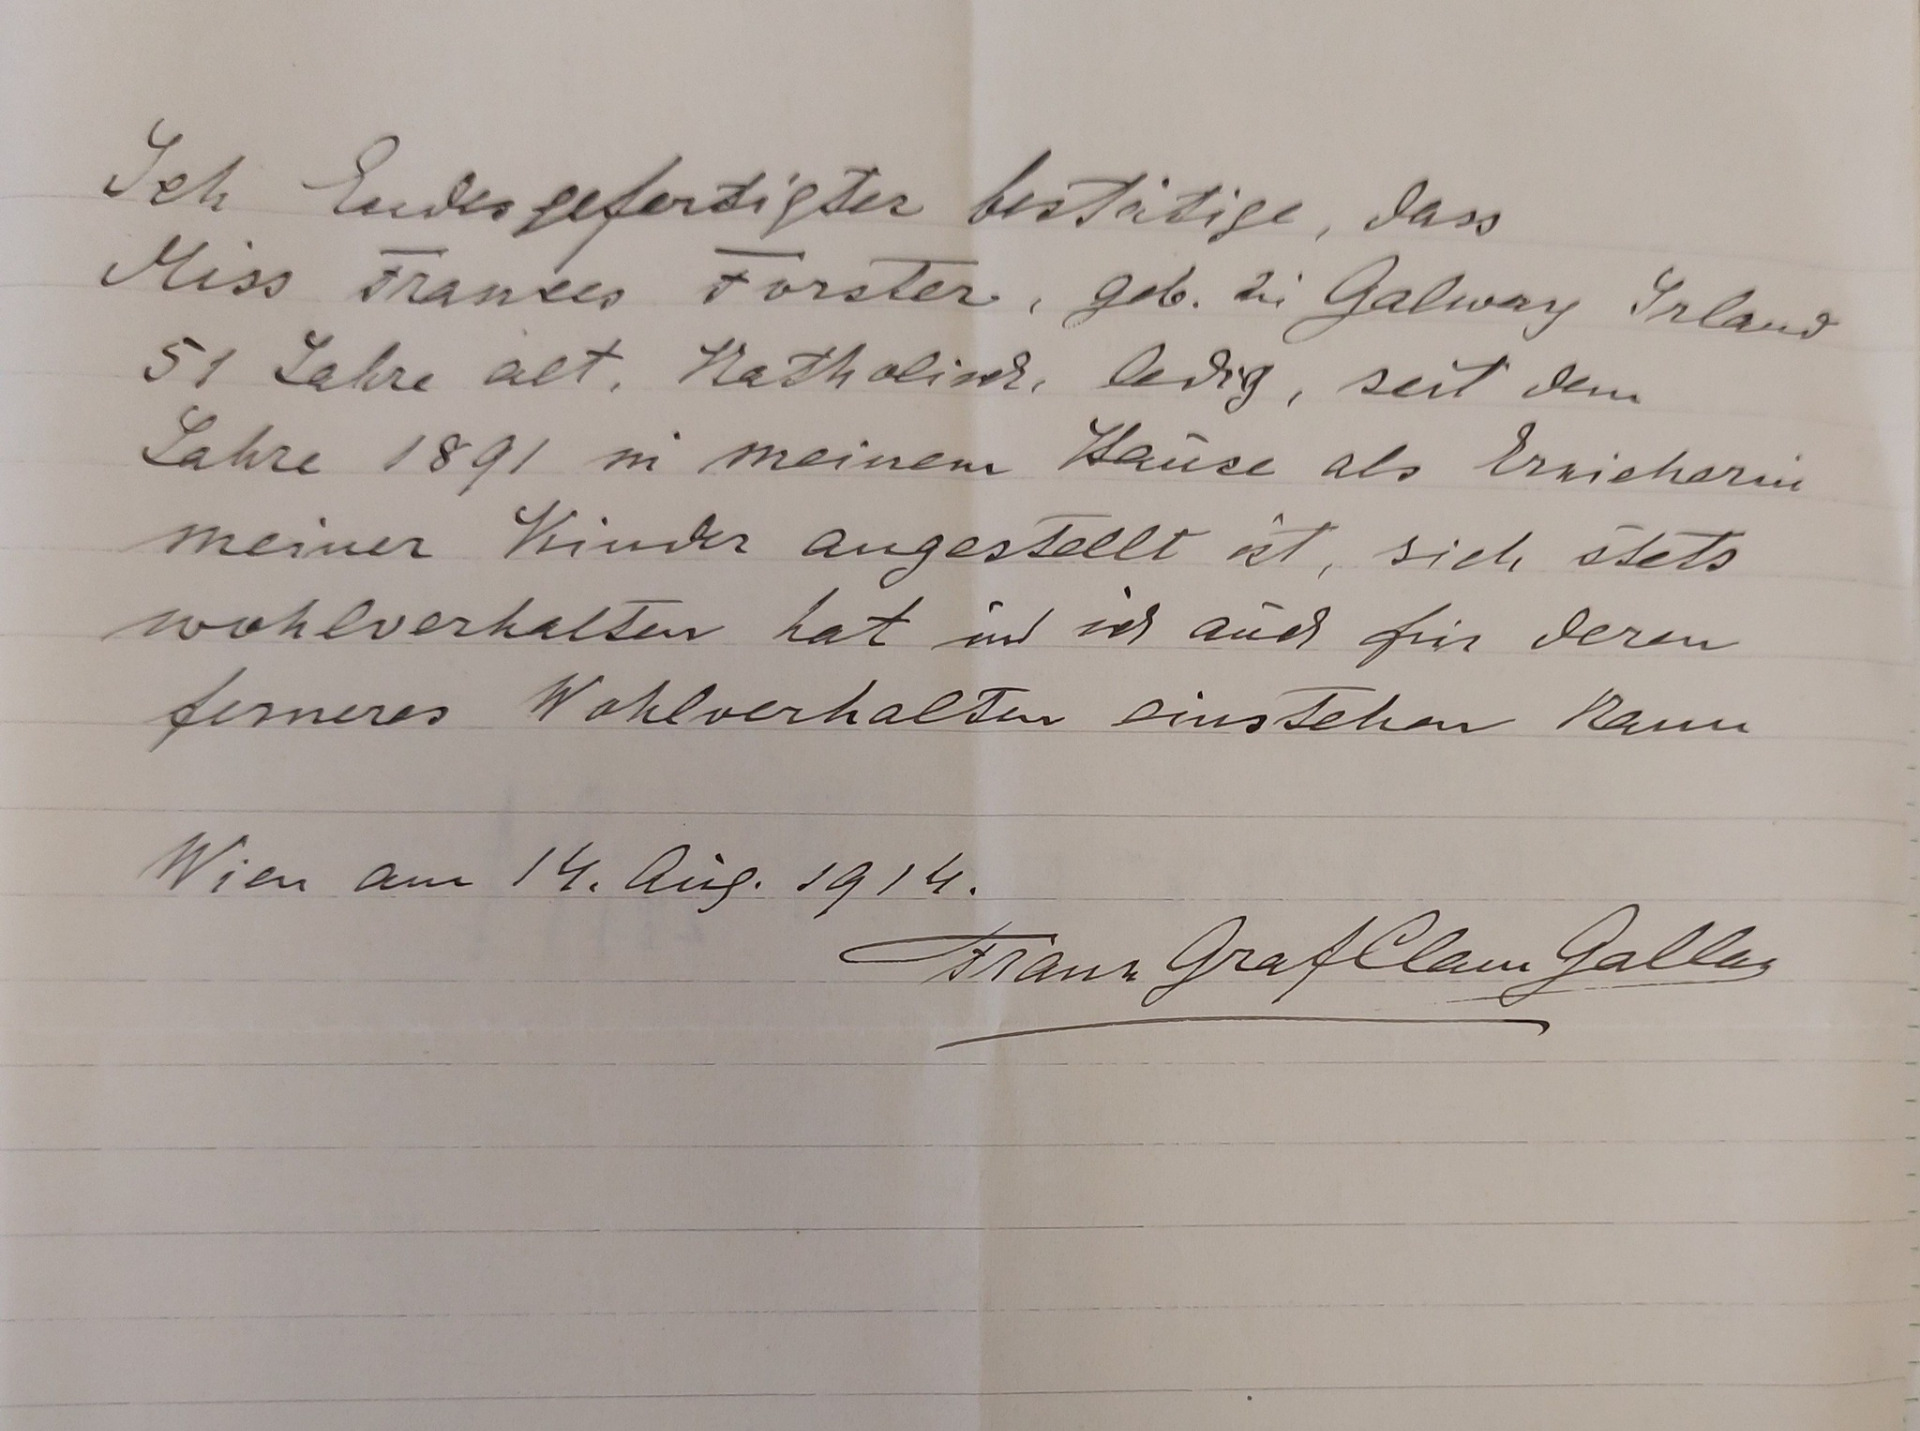 Ich Endesgefertigter bestätige, dass
Miss Frances Forster, geb. in Galway Irland
51 Jahre alt, Katholisch, ledig, seit dem
Jahre 1891 in meinem Hause als Erzieherin
meiner Kinder angestellt ist, sich stets
wohlverhalten hat und ich auch für deren
ferneres Wohlverhalten einstehen kann
Wien am 14. Aug. 1914.
Franz Graf Clam Gallas